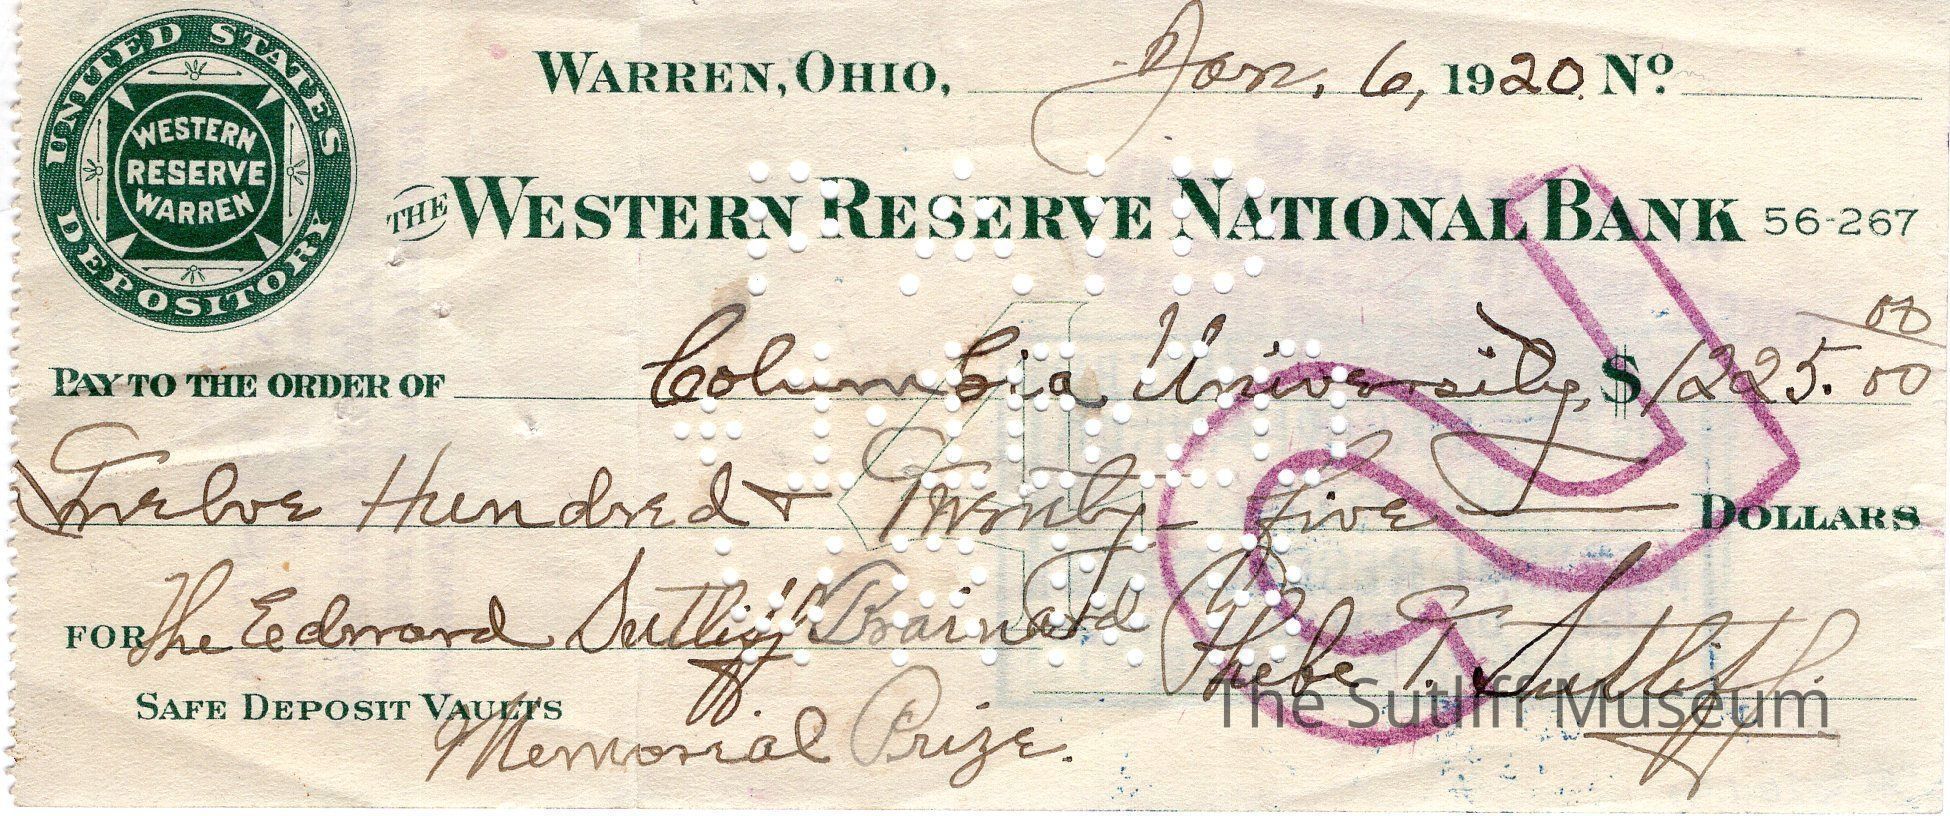 UNITED STATES DEPOSITORY
WESTERN RESERVE WARREN
WARREN, OHIO, Jan. 6, 1920. No.
THE WESTERN RESERVE NATIONAL BANK 56-267
PAY TO THE ORDER OF Columbia University, $1225.00
00
Twelve Hundred & Twenty-five DOLLARS
FOR The Edward Sutliff Brainard
Phebe T. Sutliff.
SAFE DEPOSIT VAULTS
Memorial Prize.
The Sutliff Museum